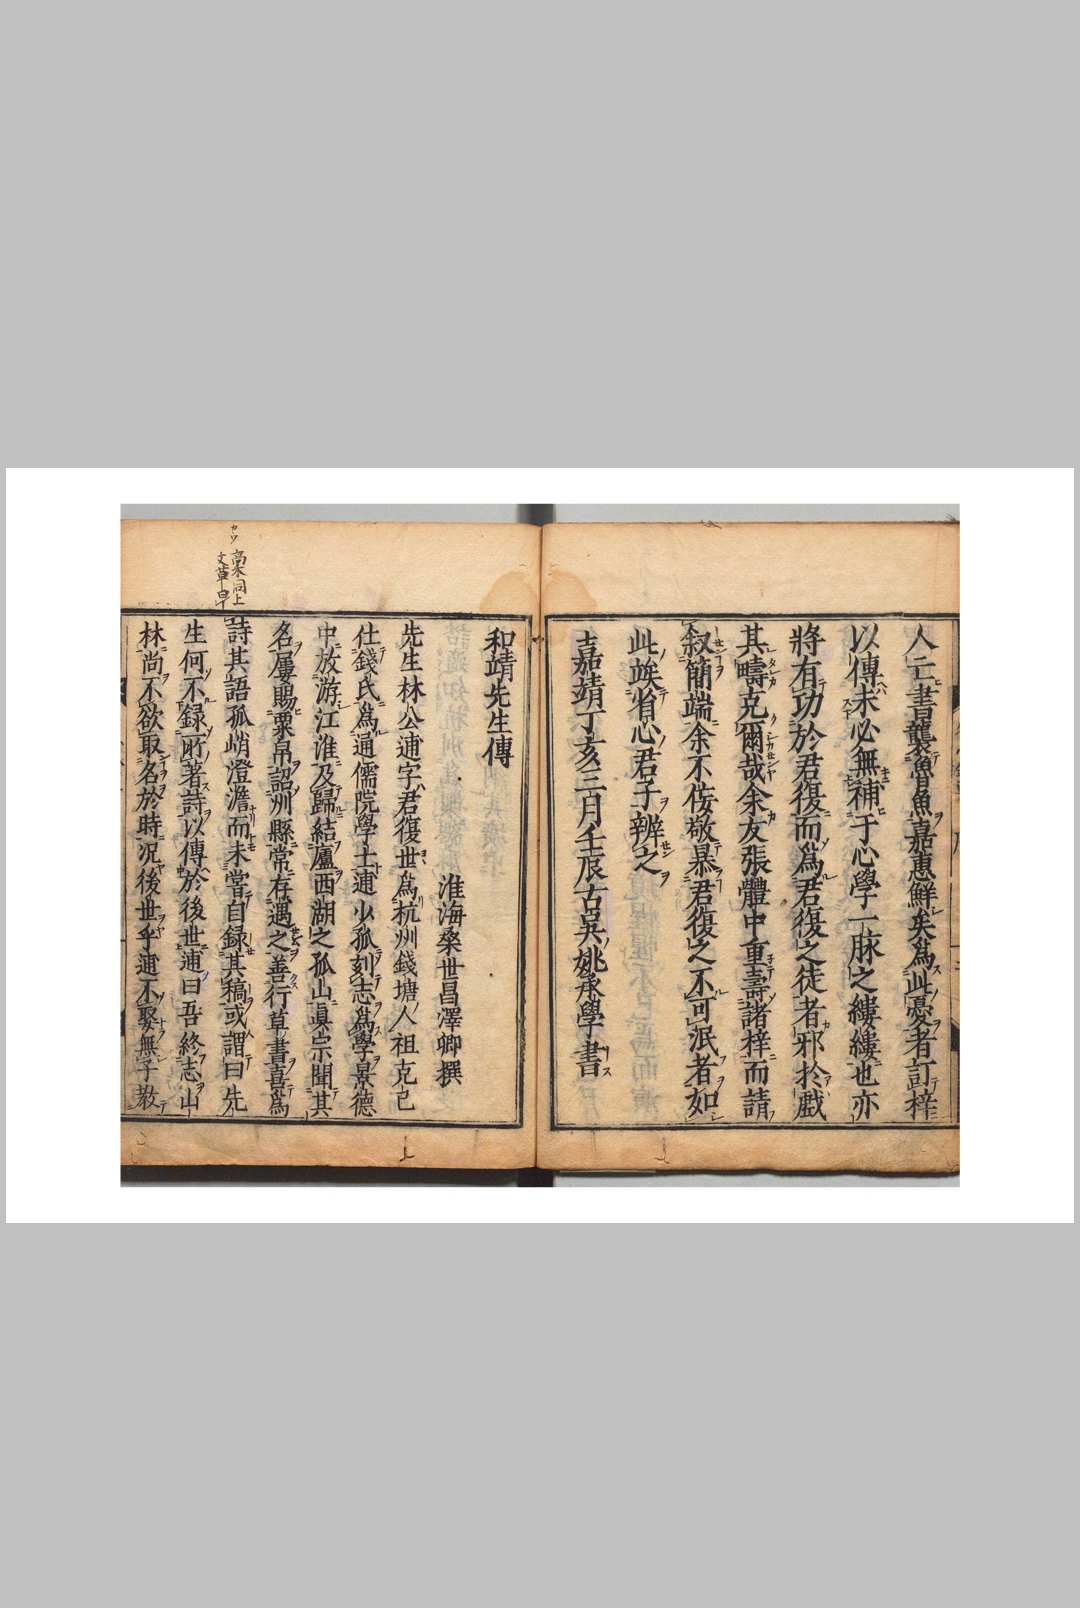 人亡書襲魯魚嘉惠鮮矣爲此憂者訂梓
以傳未必無補于心學一脉之縷縷也亦
將有功於君復而爲君復之徒者邪於戲
其疇克爾哉余友張體中重壽諸梓而請
叙簡端余不侫敬暴君復之不可泯者如
此竢省心君子辨之
嘉靖丁亥三月壬辰古吳姚承學書
和靖先生傳
淮海桑世昌澤卿撰
先生林公逋字君復世爲杭州錢塘人祖克己
仕錢氏爲通儒院學士逋少孤刻志爲學景德
中放游江淮及歸結廬西湖之孤山眞宗聞其
名屢賜粟帛詔州縣常存遇之善行草書喜爲
詩其語孤峭澄澹而未嘗自録其稿或謂曰先
生何不録所著詩以傳於後世逋曰吾終志山
林尚不欲取名於時况後世乎逋不娶無子教